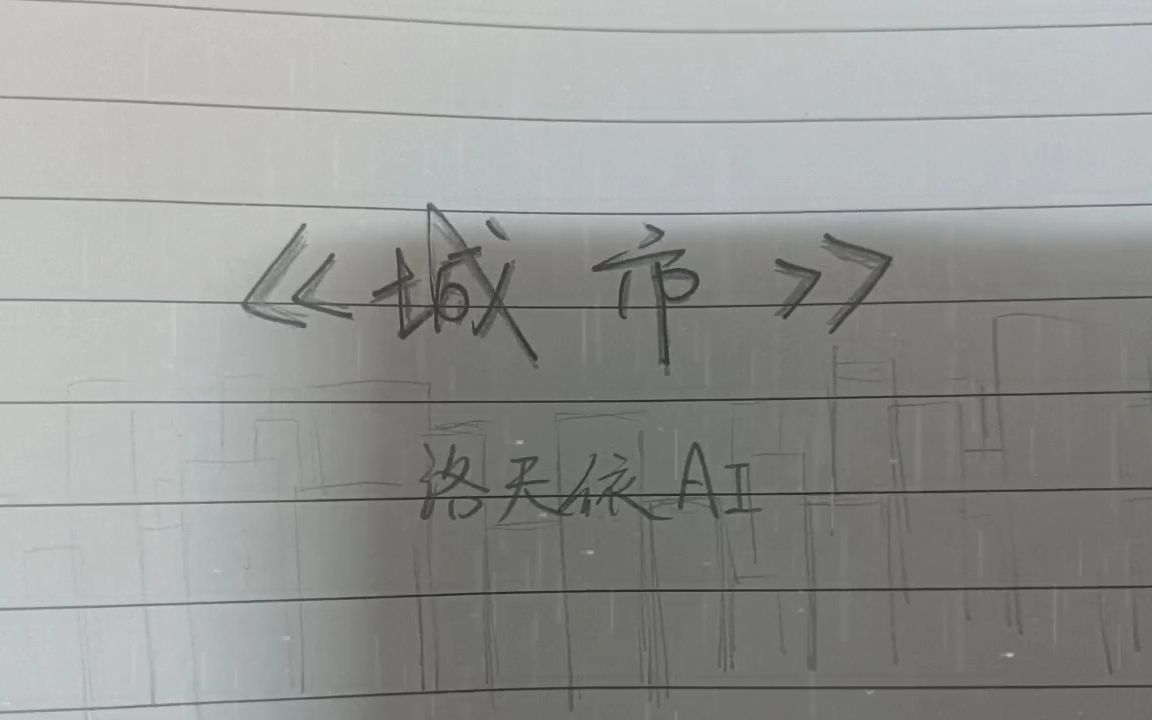 《城市》
洛天依AI